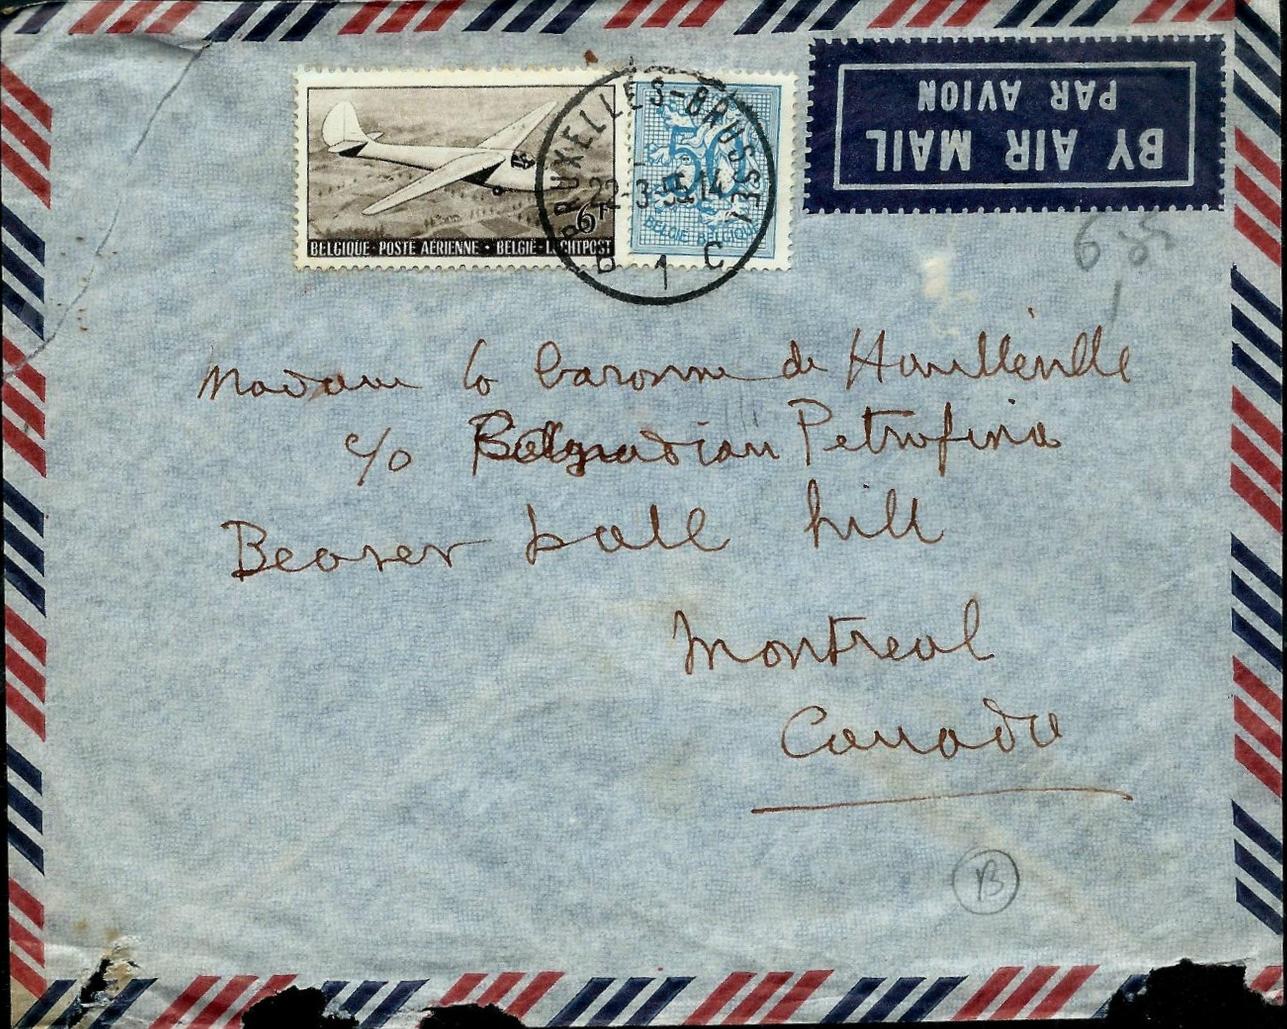 BRUXELLES-BRUSSEL
22-3-55.14
B 1 C
6F
BELGIQUE·POSTE AÉRIENNE·BELGIË·LUCHTPOST
50
BELGIË BELGIQUE
BY AIR MAIL
PAR AVION
Madame la baronne de Haulleville
c/o Belgnadian Petrofina
Beaver hall hill
Montreal
Canada
B